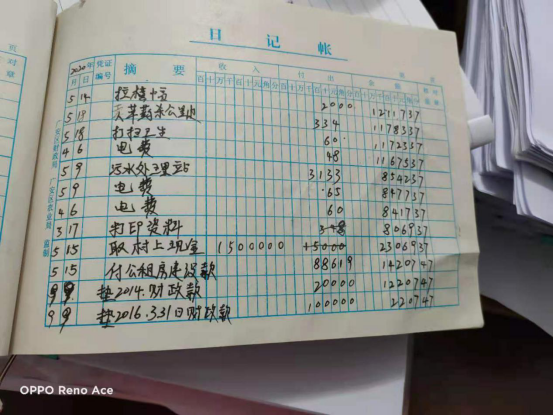 日记帐
2020年 凭证 摘要 收入 付出
月 日 编号 百十万千百十元角分 百十万千百十元角分
5 14 2000 1211737
5 18 334 1178337
5 18 打扫卫生 60 1172337
4 6 电费 48 1167537
5 9 污水处理站 3133 854237
5 9 电费 65 847737
4 6 电费 60 841737
3 17 打印资料 348 806937
5 15 取村上现金 1500000 2306937
5 15 付公租房建设款 88619 1420747
9 9 垫2014.财政款 20000 1220747
9 9 垫2016.3.31日财政款 100000 220747
广安区农业局 监制
OPPO Reno Ace